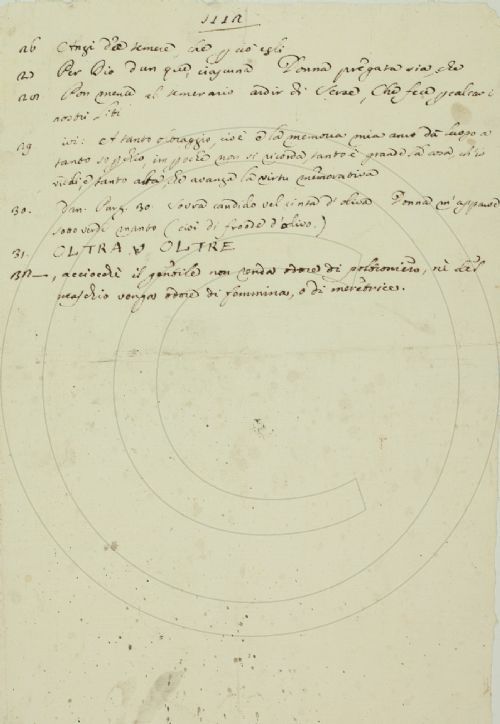 1112
26 Anzi dee temere, che
27 Per Dio dunque, ciascuna Donna pregata sia, che
28 Non meno il temerario ardir di Serse, Che fece per calcar i
nostri liti
29 ivi: A tanto oltraggio, cioè e la memoria mia anco dà luogo a
tanto soperchio, impochè non si ricorda, tanto è grande la cosa, ch'io
vidi, e tanto alta, che avanza la virtù memorativa
30. Dan. Purg. 30. Sovra candido vel cinta d'oliva Donna m'apparve
sotto verde manto (cioi di fronde d'olivo.)
31. OLTRA, v OLTRE
, acciocchè il gentile non renda odore di poltroniero, nè del
maschio venga odore di femmina, o di meretrice.